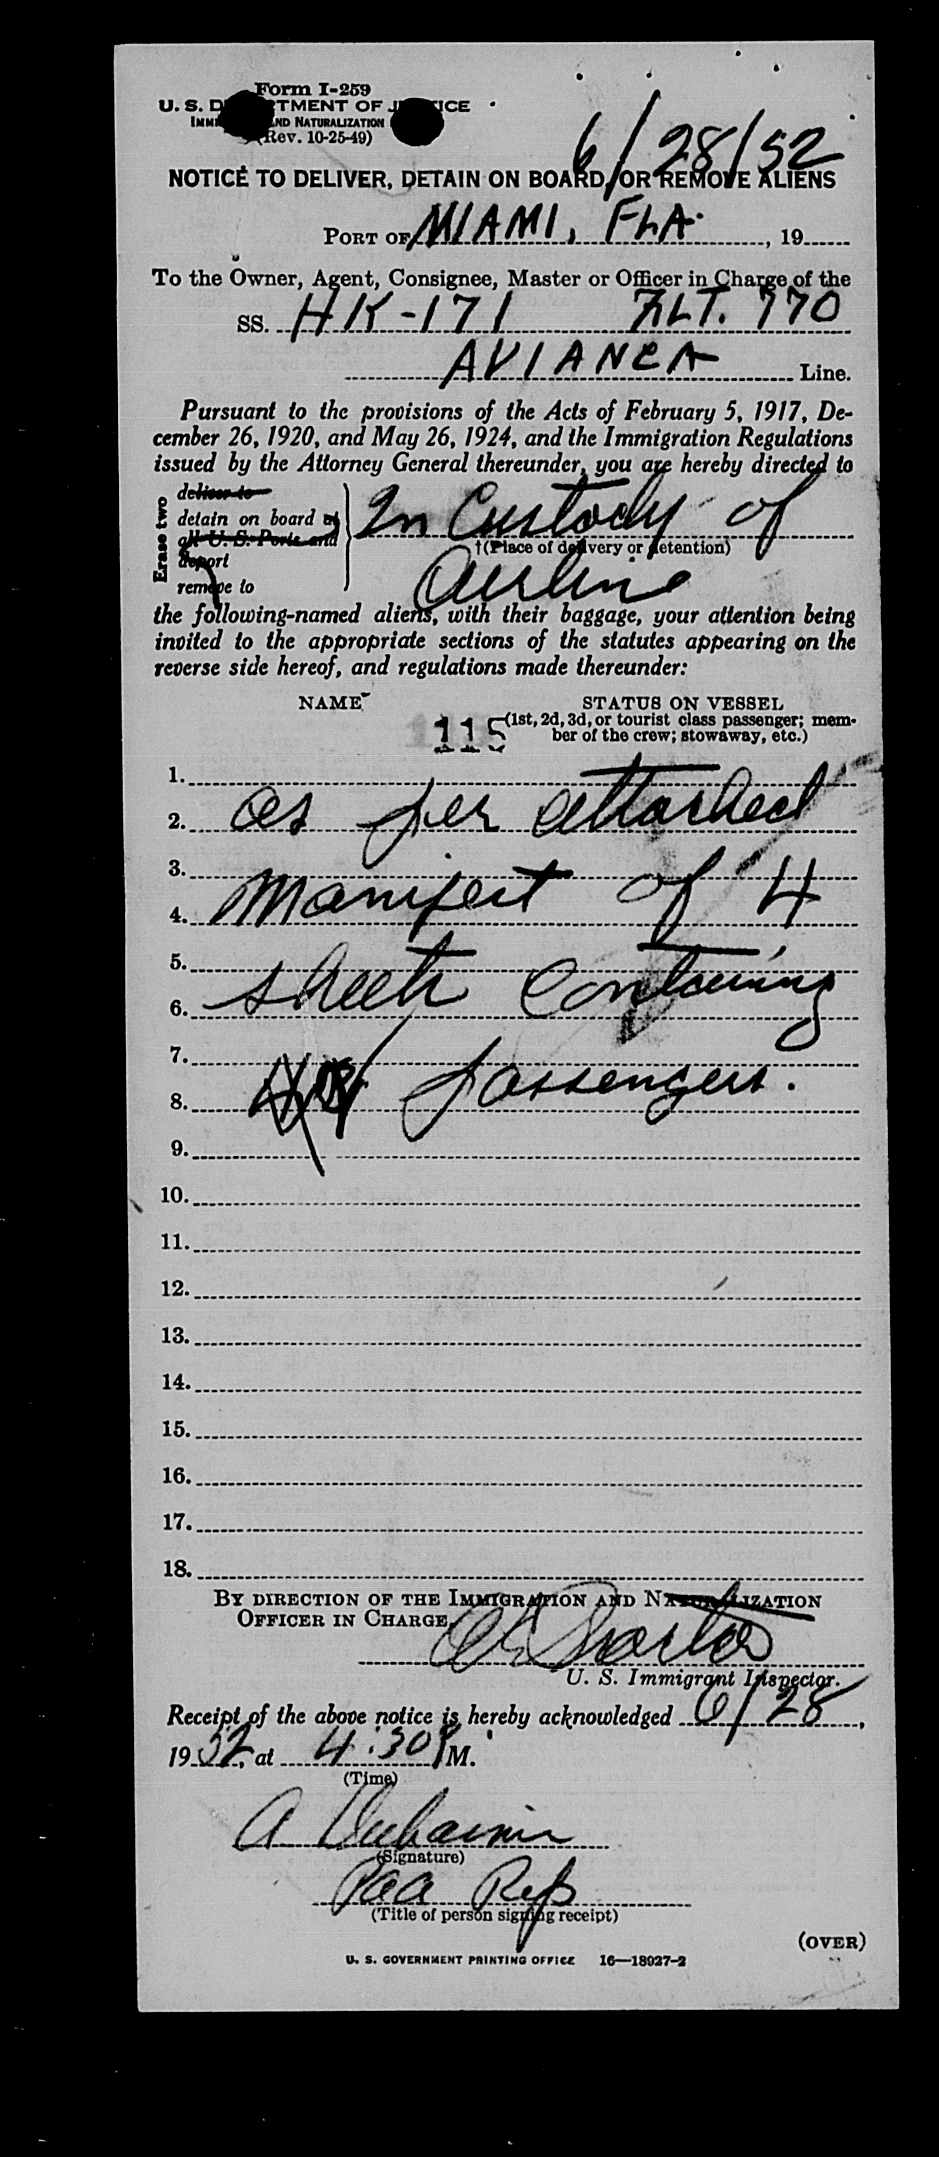 Form I-259
U. S. D TMENT OF J ICE
IMM ND NATURALIZATION
(Rev. 10-25-49)
6/28/52
NOTICE TO DELIVER, DETAIN ON BOARD, OR REMOVE ALIENS
PORT OF MIAMI, FLA. , 19
To the Owner, Agent, Consignee, Master or Officer in Charge of the
SS. HK-171 FLT. 770
AVIANCA Line.
Pursuant to the provisions of the Acts of February 5, 1917, De-
cember 26, 1920, and May 26, 1924, and the Immigration Regulations
issued by the Attorney General thereunder, you are hereby directed to
Erase two
deliver to
detain on board at
all U. S. Ports and
deport
remove to
In Custody of
†(Place of delivery or detention)
Airline
the following-named aliens, with their baggage, your attention being
invited to the appropriate sections of the statutes appearing on the
reverse side hereof, and regulations made thereunder:
NAME STATUS ON VESSEL
(1st, 2d, 3d, or tourist class passenger; mem-
ber of the crew; stowaway, etc.)
115
1.
2. as per attached
3.
4. Manifest of 4
5.
6. sheets containing
7.
8. passengers.
9.
10.
11.
12.
13.
14.
15.
16.
17.
18.
BY DIRECTION OF THE IMMIGRATION AND NATURALIZATION
OFFICER IN CHARGE
U. S. Immigrant Inspector.
Receipt of the above notice is hereby acknowledged 6/28,
1952, at 4:30 P M.
(Time)
A
(Signature)
Paa Rep
(Title of person signing receipt)
(OVER)
U. S. GOVERNMENT PRINTING OFFICE 16—18027-2